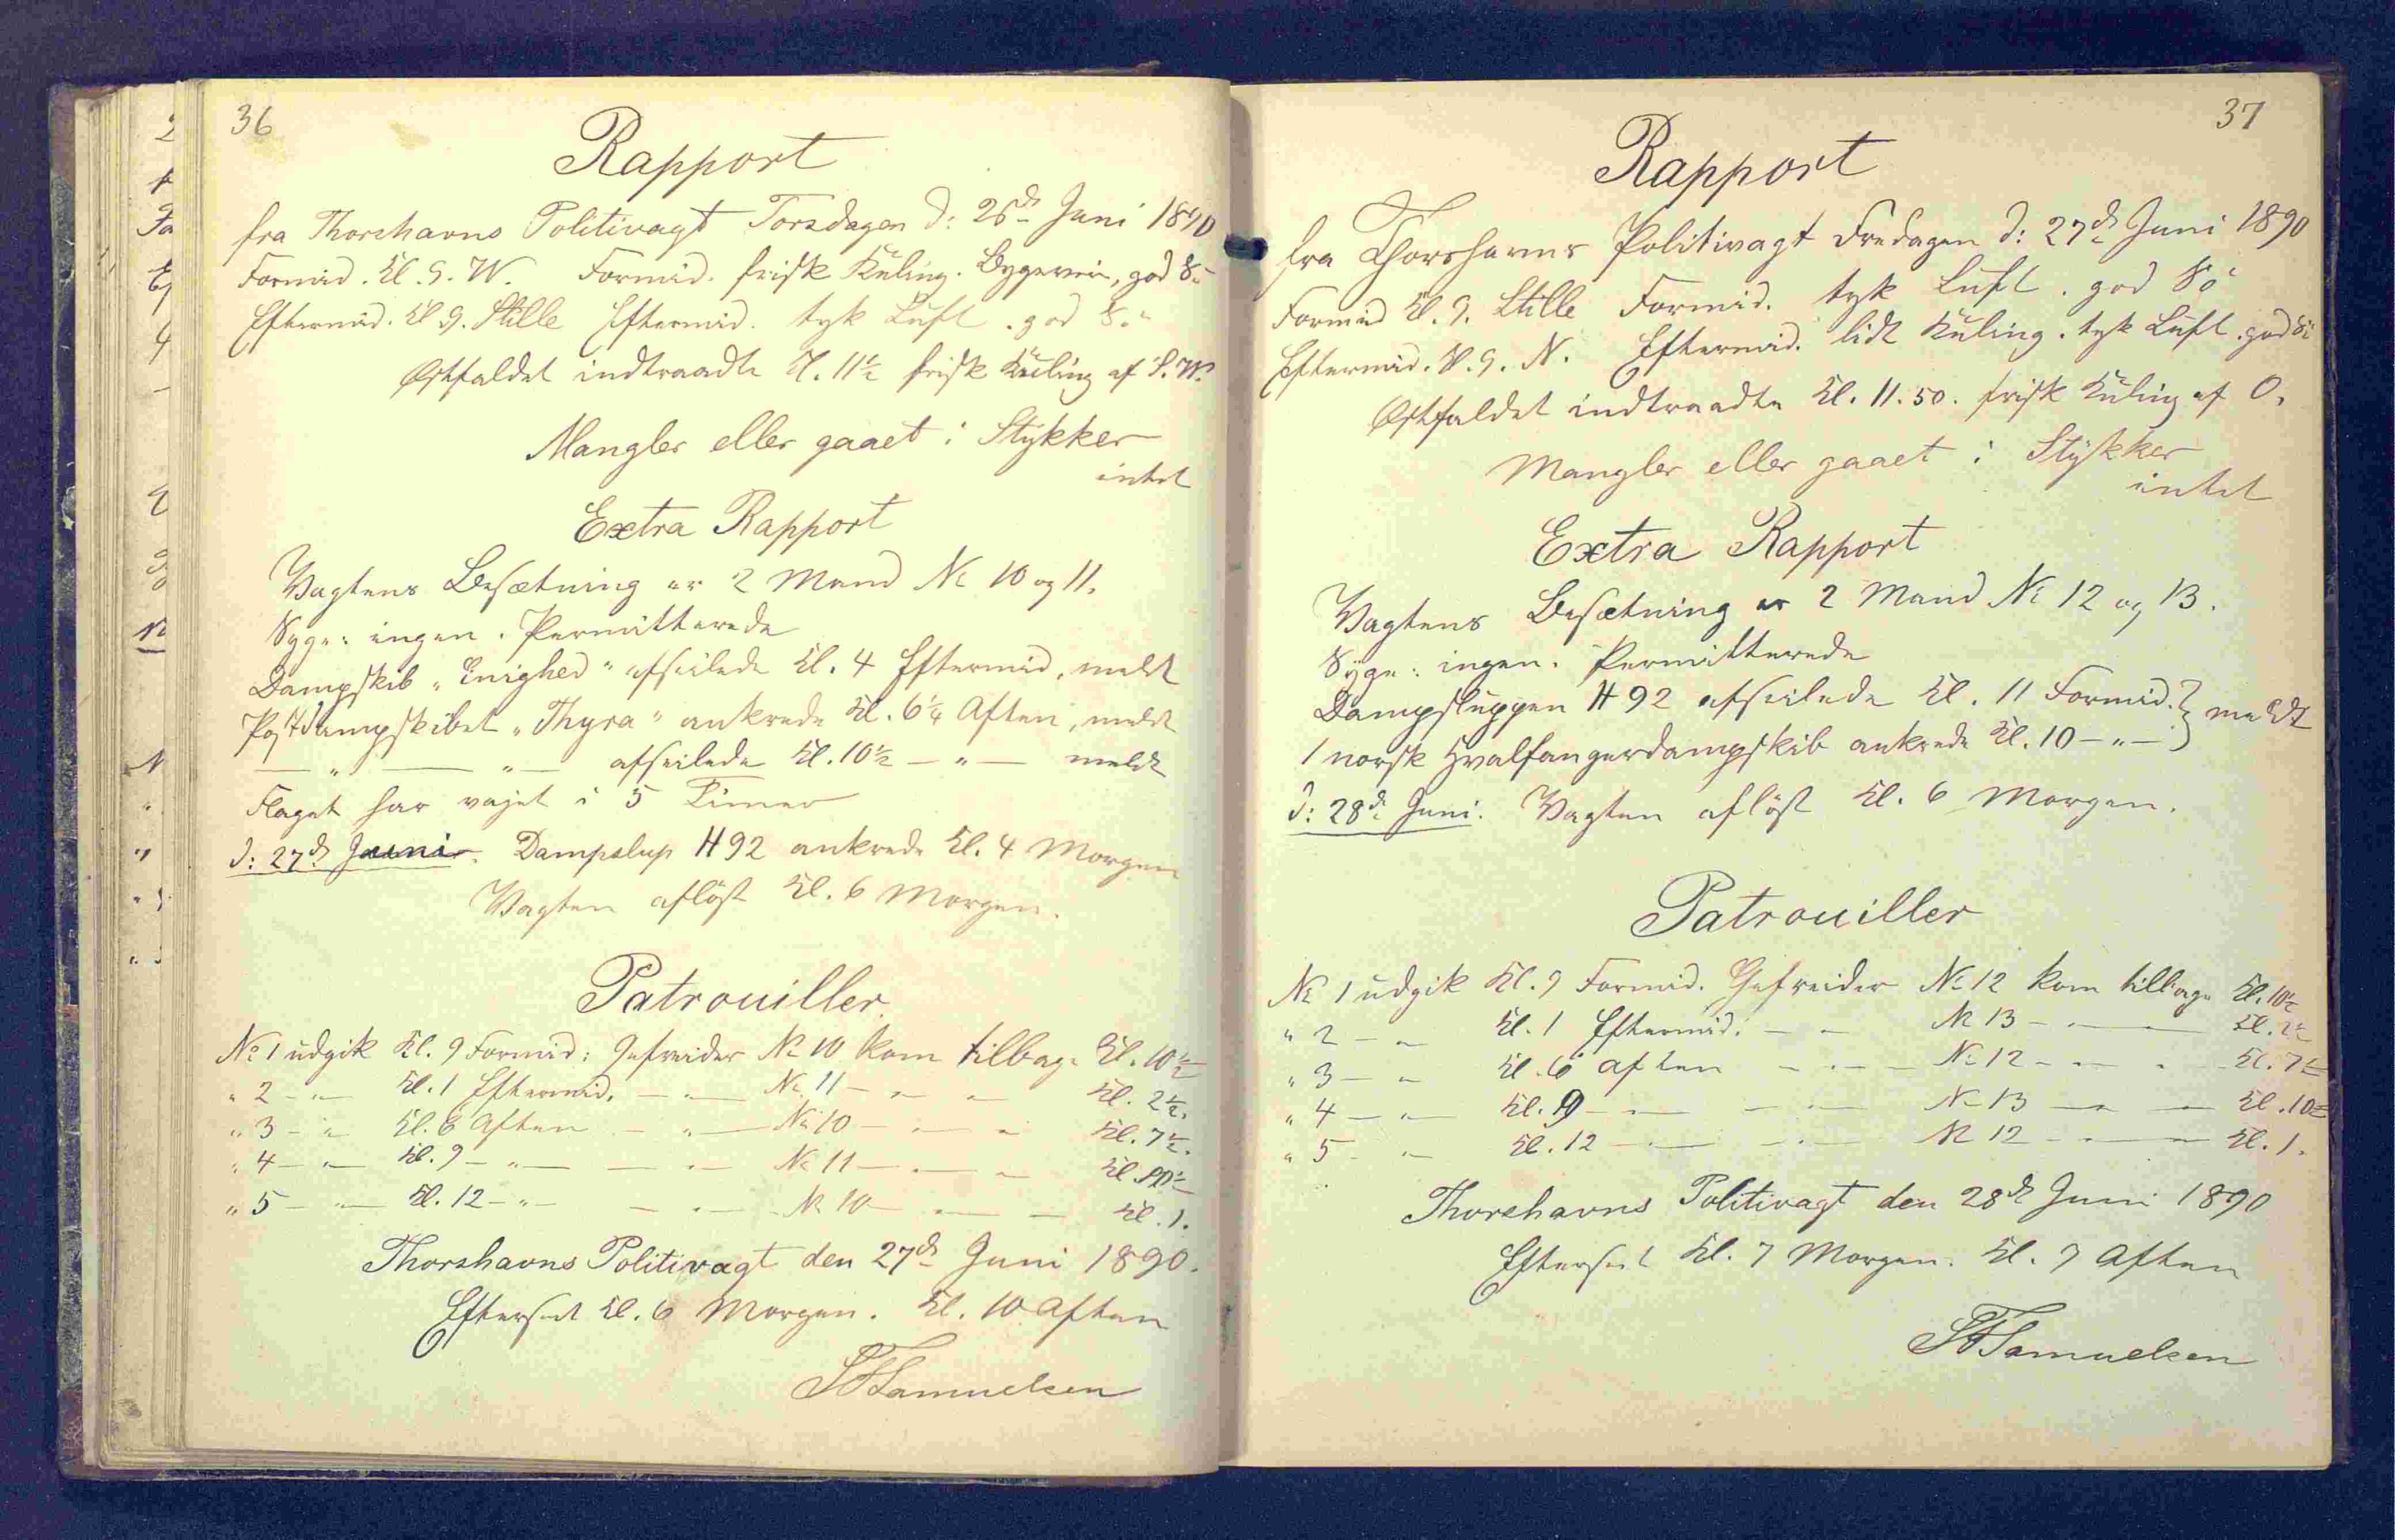 36
Rapport
fra Thorshavns Politivagt Torsdagen d: 26de Juni 1890
Formid. Kl. 9. W. Formid. frisk Kuling. Bygeveir, god Sö
Eftermid. Kl 9. Stille Eftermid. tyk Luft. god Sö
Østfaldet indtraadte Kl. 11½ frisk Kuling af S.W.
Mangler eller gaaet i Stykker
intet
Extra Rapport
Vagtens Besætning er 2 Mand No 10 og 11.
Syge: ingen. Permitterede
Dampskib "Enighed" afseilede Kl. 4 Eftermid, meldt
Postdampskibet "Thyra" ankrede Kl. 6¼ Aften, meldt
— " — — " — afseilede Kl. 10½ — " — meldt
Flaget har vajet i 5 Timer
d: 27de Juni. Dampslup H92 ankrede Kl. 4 Morgen
Vagten aflöst Kl. 6 Morgen.
Patrouiller.
No 1 udgik Kl. 9 Formid: Gefreider No 10 kom tilbage Kl. 10½
" 2 — " — Kl. 1 Eftermid. — " — No 11 — " — " Kl. 2½.
" 3 — " — Kl. 6 Aften — " — No 10 — " — " Kl. 7½.
" 4 — " — Kl. 9 — " — — " — No 11 — " — " Kl. 10½
" 5 — " — Kl. 12 — " — — " — No 10 — " — Kl. 1.
Thorshavns Politivagt den 27de Juni 1890.
Efterseet Kl. 6 Morgen. Kl. 10 Aften
Samuelsen
37
Rapport
fra Thorshavns Politivagt Fredagen d: 27de Juni 1890
Formid Kl. 9. Stille Formid. tyk Luft. god Sö
Eftermid. Kl. 9. N. Eftermid. lidt Kuling. tyk Luft. god Sö
Østfaldet indtraadte Kl. 11.50. frisk Kuling af O.
Mangler eller gaaet i Stykker
intet
Extra Rapport
Vagtens Besætning er 2 Mand No 12 og 13.
Syge: ingen. Permitterede
Dampsluppen H92 afseilede Kl. 11 Formid. } meldt
1 norsk Hvalfangerdampskib ankrede Kl. 10 — " — }
d: 28de Juni. Vagten aflöst Kl. 6 Morgen.
Patrouiller
No 1 udgik Kl. 9 Formid. Gefreider No 12 kom tilbage Kl. 10½
" 2 — " Kl. 1 Eftermid. — " No 13 — " — Kl. 2½
" 3 — " Kl. 6 Aften — " — No 12 — " — " Kl. 7½
" 4 — " — Kl. 9 — " — — " — No 13 — " — Kl. 10½
" 5 — " — Kl. 12 — " — — " — No 12 — " — Kl. 1.
Thorshavns Politivagt den 28de Juni 1890
Efterseet Kl. 7 Morgen. Kl. 9 Aften
Samuelsen